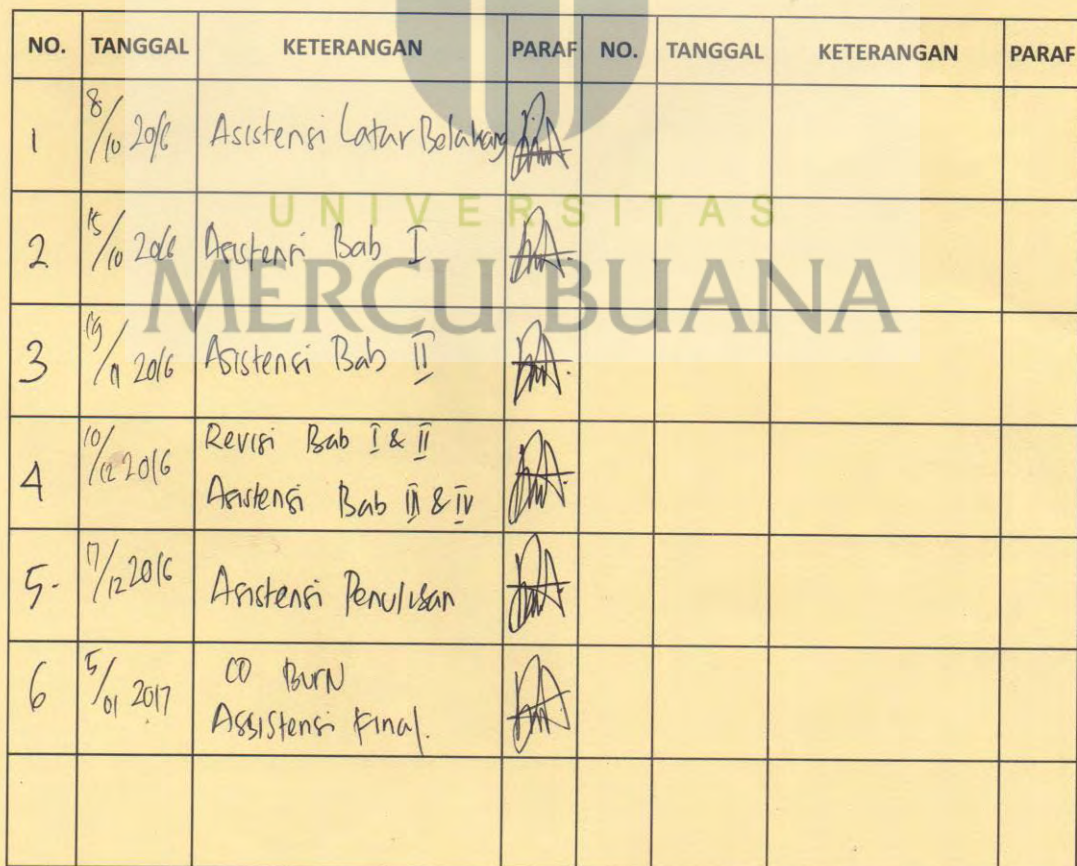 NO. TANGGAL KETERANGAN PARAF NO. TANGGAL KETERANGAN PARAF
1 8/10 2016 Asistensi Latar Belakang
UNIVERSITAS
2 15/10 2016 Asistensi Bab I
MERCU BUANA
3 19/11 2016 Asistensi Bab II
4 10/12 2016 Revisi Bab I & II
Asistensi Bab III & IV
5. 17/12 2016 Asistensi Penulisan
6 5/01 2017 CD Burn
Assistensi Final.